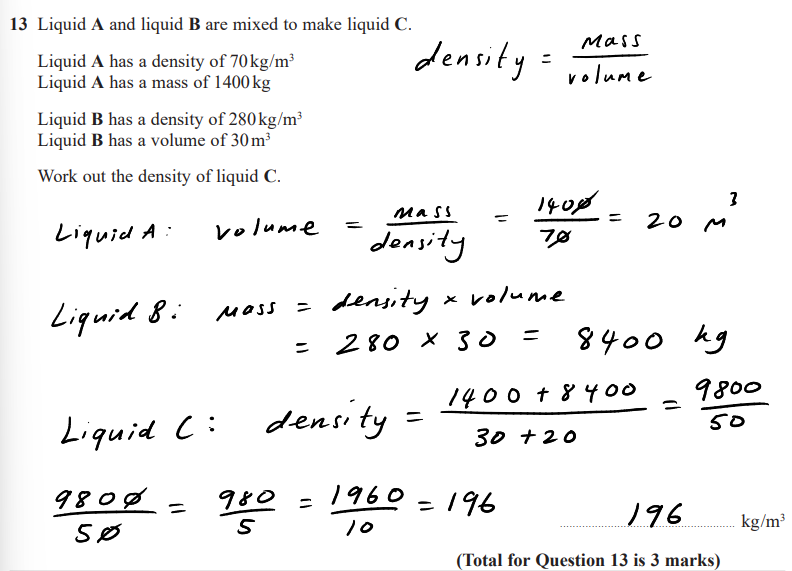 13 Liquid A and liquid B are mixed to make liquid C.
density = mass / volume
Liquid A has a density of 70 kg/m³
Liquid A has a mass of 1400 kg
Liquid B has a density of 280 kg/m³
Liquid B has a volume of 30 m³
Work out the density of liquid C.
Liquid A: volume = mass / density = 1400 / 70 = 20 m³
Liquid B: mass = density × volume
= 280 × 30 = 8400 kg
Liquid C: density = 1400 + 8400 / 30 + 20 = 9800 / 50
9800 / 50 = 980 / 5 = 1960 / 10 = 196
196 kg/m³
(Total for Question 13 is 3 marks)